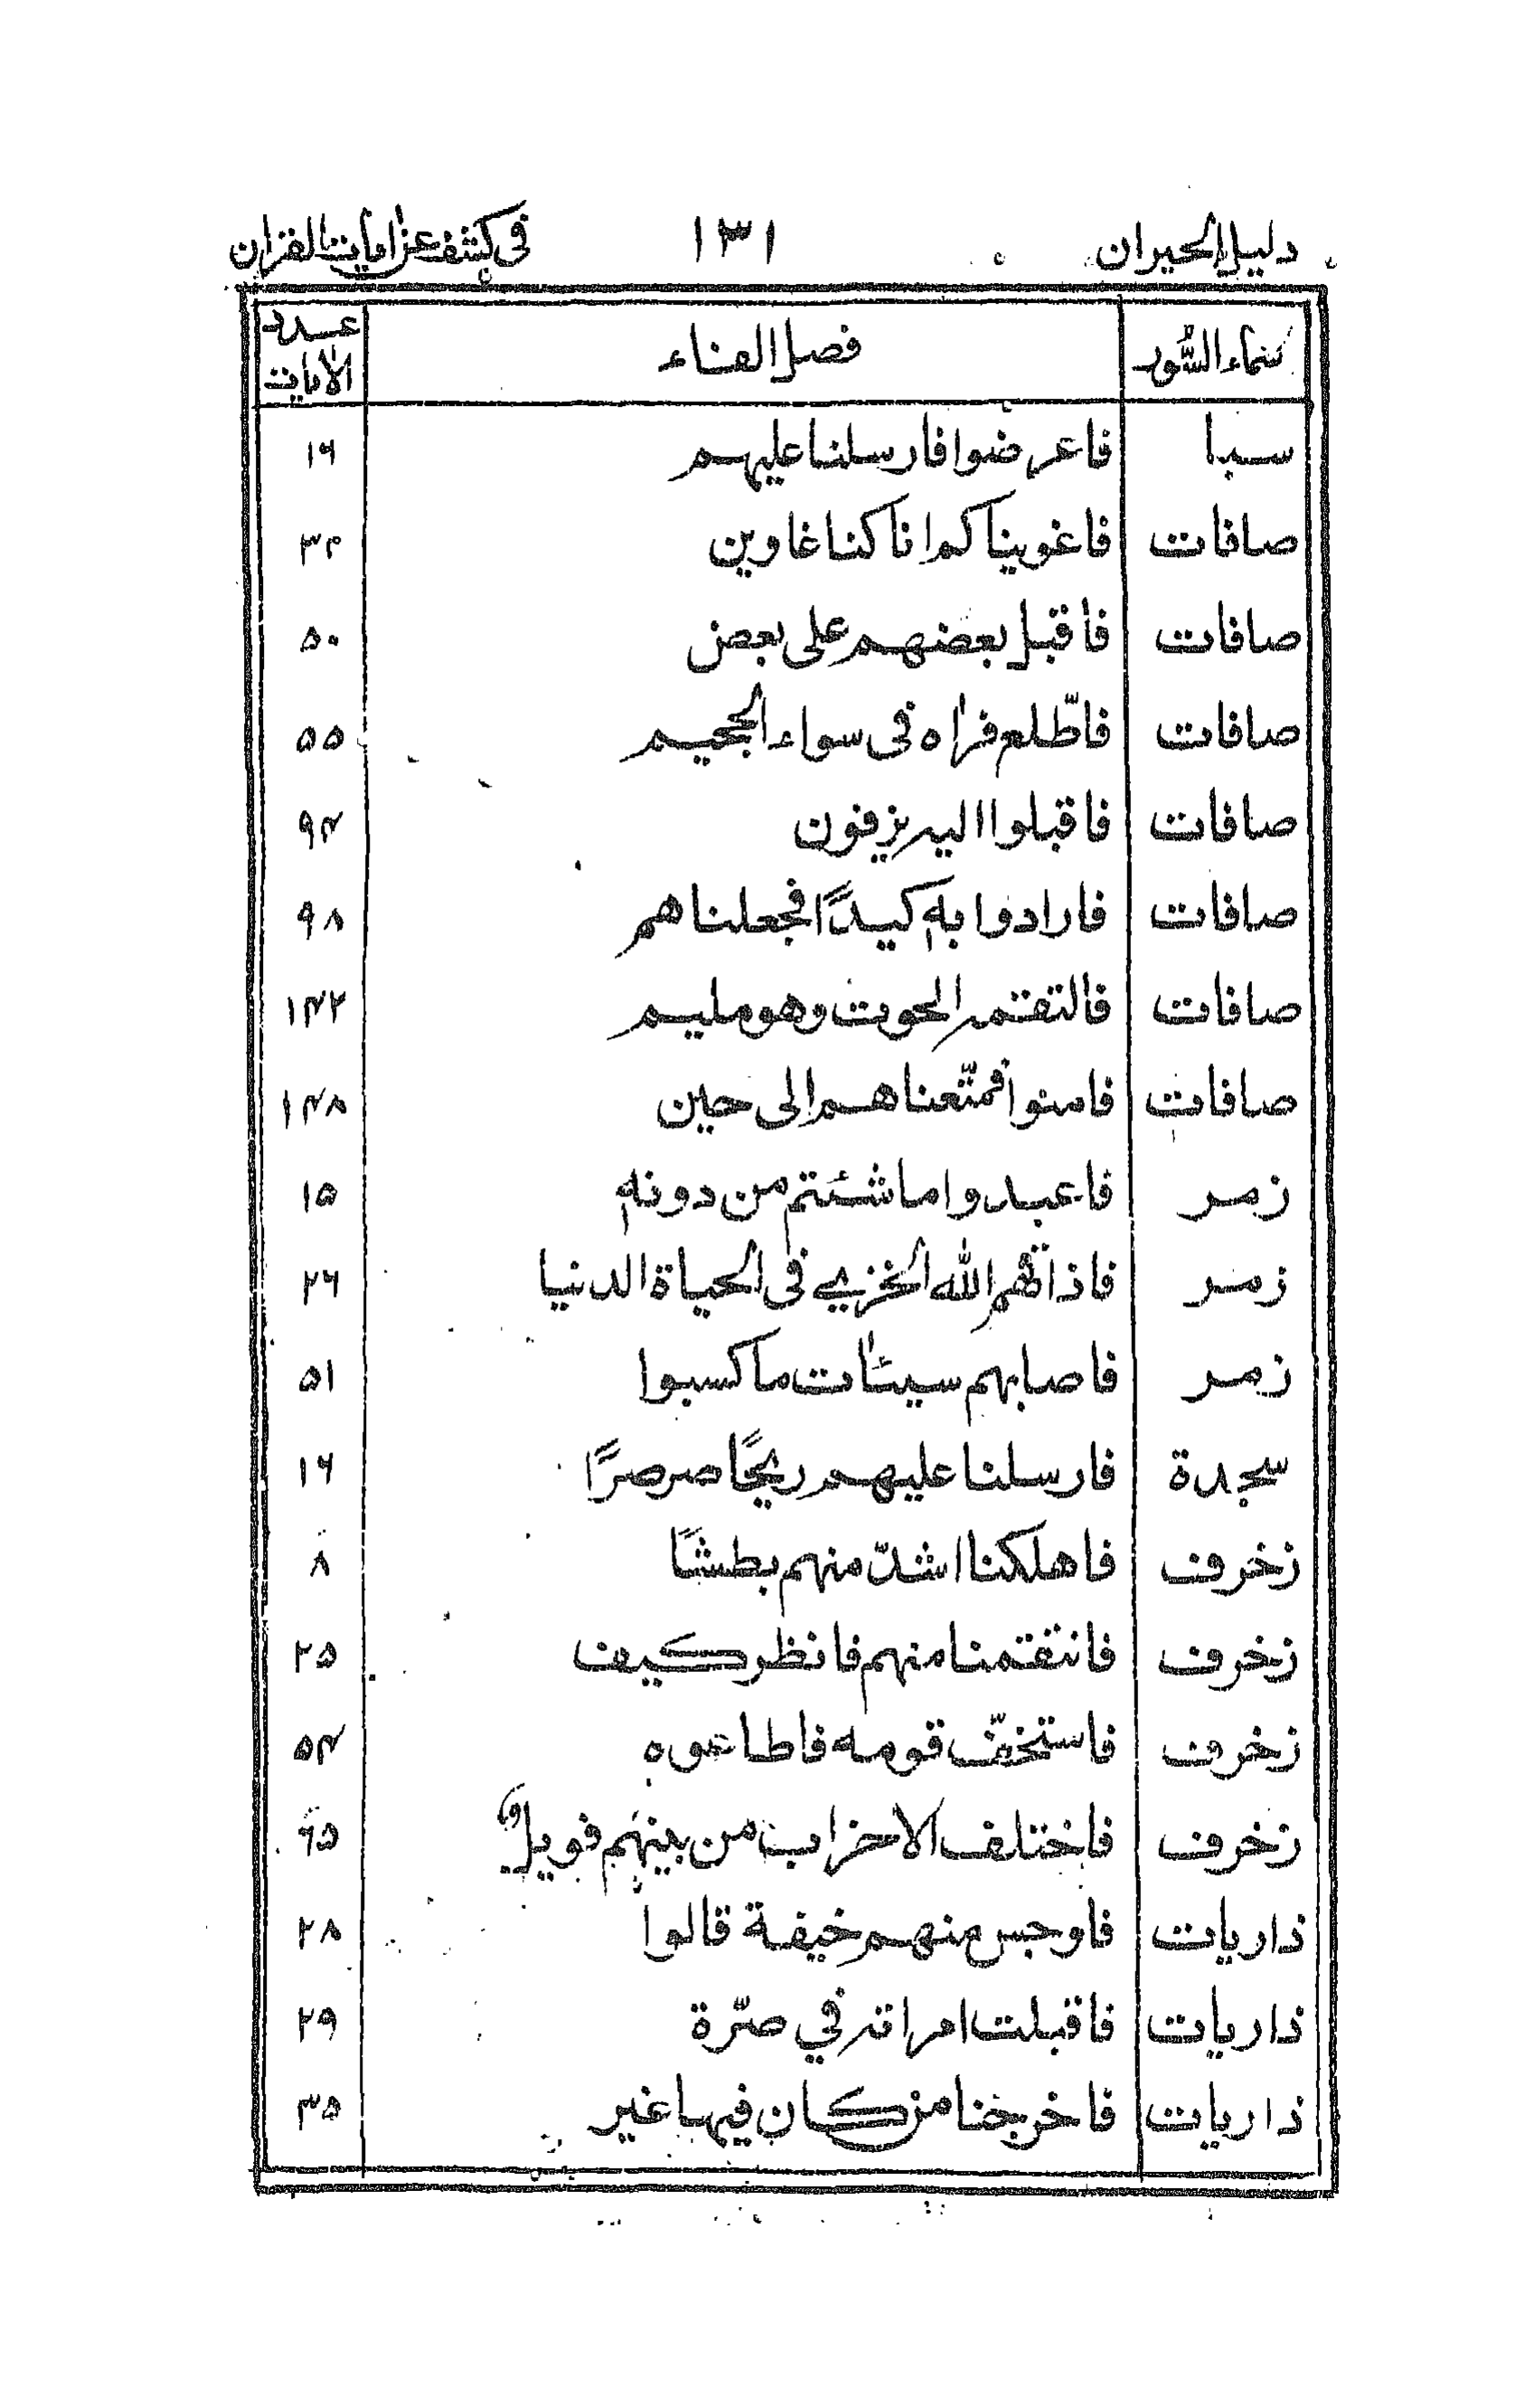 دليل الحيران ١٣١ فى كشف عن اٰيات القران
سماء السُّور فصل الفاء عدد الاٰيات
سبا فاعرضوا فارسلنا عليهم ١٦
صافات فاغويناكم انا كنا غاوين ٣٢
صافات فاقبل بعضهم على بعض ٥٠
صافات فاطّلع فراٰه فى سواء الجحيم ٥٥
صافات فاقبلوا اليه يزفون ٩٤
صافات فارادوا بهٖ كيدًا فجعلناهم ٩٨
صافات فالتقتمه الحوت وهو مليم ١٤٢
صافات فامنوا فمتّعناهم الى حين ١٤٨
زمر فاعبدوا ما شئتم من دونهٖ ١٥
زمر فاذاقهم الله الخزى فى الحياة الدنيا ٢٦
زمر فاصابهم سيئاٰت ما كسبوا ٥١
سجدة فارسلنا عليهم ريحًا صرصرًا ١٦
زخرف فاهلكنا اشدّ منهم بطشًا ٨
زخرف فانتقمنا منهم فانظر كيف ٢٥
زخرف فاستخفّ قومه فاطاعوه ٥٤
زخرف فاختلف الاحزاب من بينهم فويل ٦٥
ذاريات فاوجس منهم خيفة قالوا ٢٨
ذاريات فاقبلت امراته في صرّة ٢٩
ذاريات فاخرجنا من كان فيها غير ٣٥